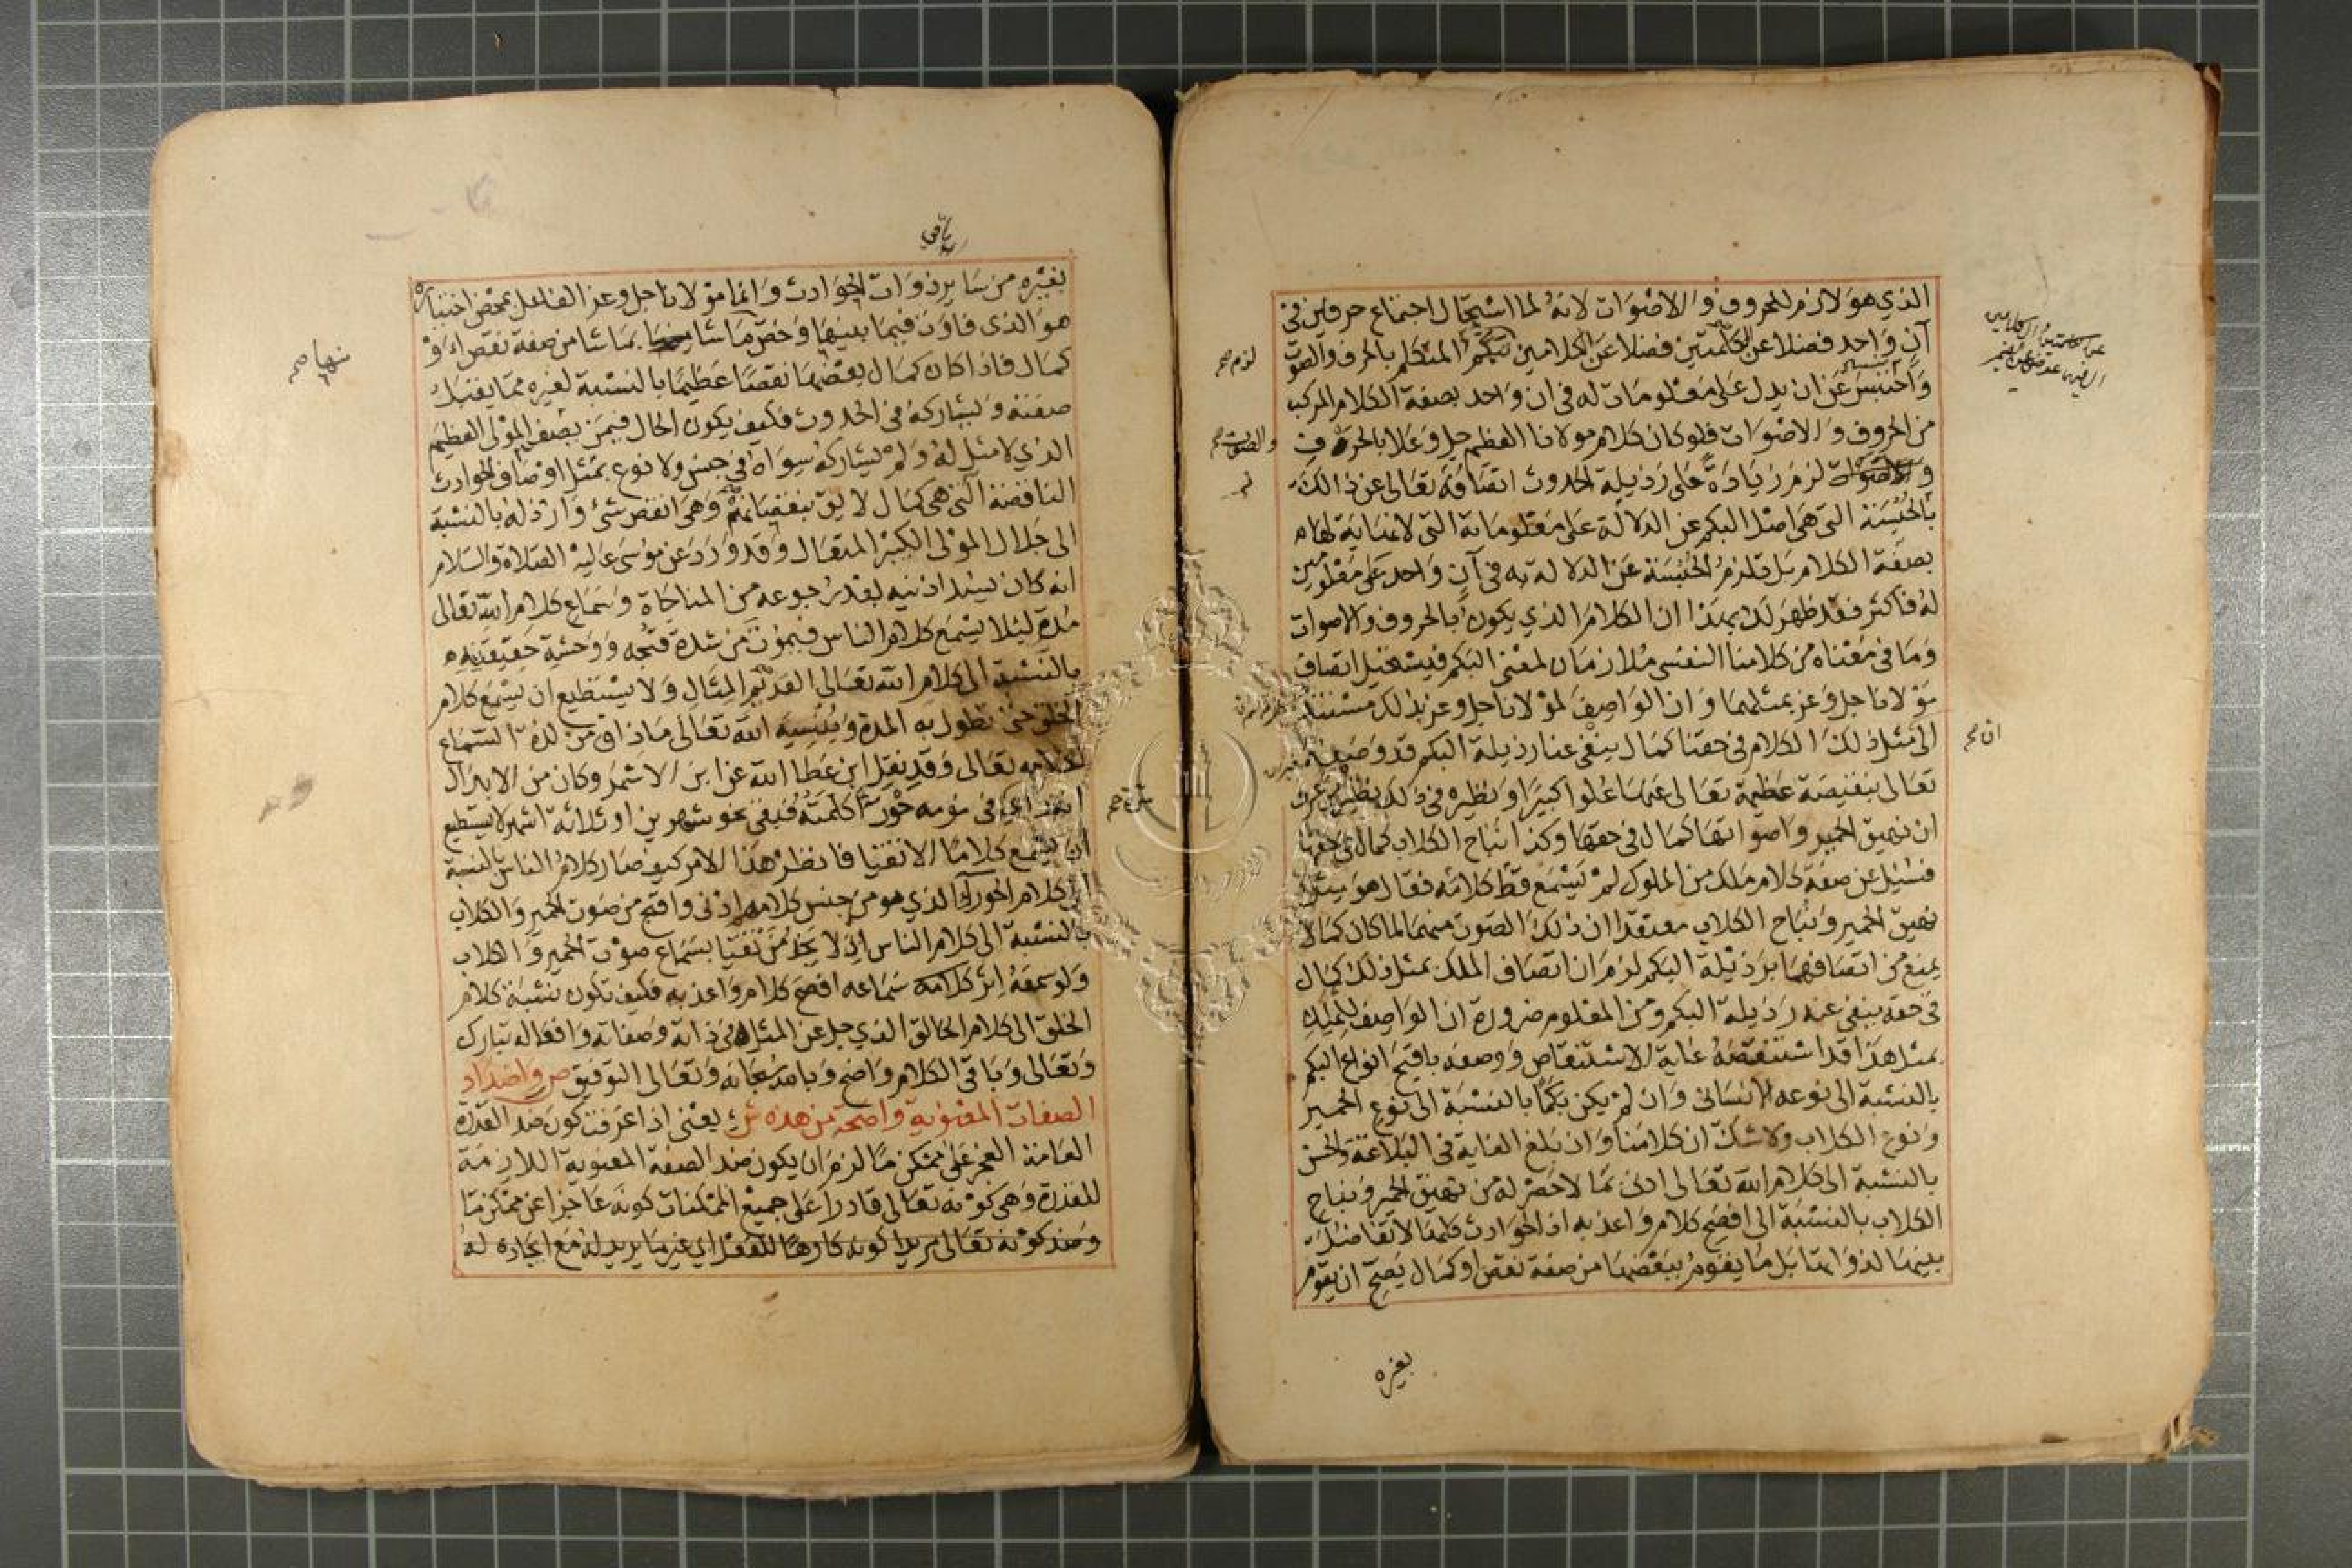 الذي هو لازم للحروف والاصوات لانه لما استحال اجتماع حرفين في
آن واحد فضلا عن الكلمتين فضلا عن الكلامين تبكم المتكلم بالحرف والصوت
واحتبس عن ان يدل على معلومات له في ان واحد بصفة الكلام المركب
من الحروف والاصوات فلو كان كلام مولانا العظيم جل وعلا بالحروف
والاصوات لزم زيادة على رذيلة الحدوث اتصافه تعالى عن ذالك
بالحبسة التي هي اصل البكم عن الدلالة على معلوماته التي لا نهاية لها
بصفة الكلام بل تلزم الحبسة عن الدلالة به في آن واحد على معلومين
له فاكثر فقد ظهر لك بهذا ان الكلام الذي يكون بالحروف والاصوات
وما في معناه من كلامنا النفسي ملازمان لمعنى البكم فيستحيل اتصاف
مولانا جل وعز بمثلهما وان الواصف لمولانا جل وعز بذلك مستندا
الى مثل ذلك الكلام في حقنا كمال ينفي عنا رذيلة البكم قد وصفه
تعالى بنقيصة عظيمة تعالى عنها علوا كبيرا ونظيره في ذلك نظير من عرف
ان نهيق الحمير واصواتها كمال في حقها وكذا انباح الكلاب كمال في حقها
فسئل عن صفة كلام ملك من الملوك لم يسمع قط كلامه فقال هو مثل
نهيق الحمير ونباح الكلاب معتقدا ان ذلك الصوت منهما لما كان كمالا
يمنع من اتصافهما برذيلة البكم لزم ان اتصاف الملك بمثل ذلك كمال
في حقه ينفي عنه رذيلة البكم ومن المعلوم ضرورة ان الواصف للملك
بمثل هذا قد استنقصه غاية الاستنقاص ووصفه باقبح انواع البكم
بالنسبة الى نوعه الانساني وان لم يكن بكما بالنسبة الى نوع الحمير
ونوع الكلاب ولا شك ان كلامنا وان بلغ الغاية في البلاغة والحسن
بالنسبة الى كلام الله تعالى ادنى مما لا حصر له من نهيق الحمير ونباح
الكلاب بالنسبة الى افصح كلام واعذبه اذ الحوادث كلها لا تفاضل
بينها لذواتها بل ما يقوم ببعضها من صفة نقص او كمال يصح ان يقوم
بغيره
لزم صح
ان صح
بغيره من ساير ذوات الحوادث وانما مولانا جل وعز الفاعل بمحض اختياره
هو الذي فاوت فيما بينها وخص ما شا بما شا من صفة نقص او
كمال فاذا كان كمال بعضها نقصا عظيما بالنسبة لغيره مما يقبل
صفته ويشاركه في الحدوث فكيف يكون الحال فيمن يصف المولى العظيم
الذي لا مثل له ولم يشاركه سواه في جنس ولا نوع بمثل اوصاف الحوادث
الناقصة التي هي كمال لايق بنقصانهم وهي انقص شئ وارذله بالنسبة
الى جلال المولى الكبير المتعال وقد ورد عن موسى عليه الصلاة والسلام
انه كان يسد اذنيه بعد رجوعه من المناجاة وسماع كلام الله تعالى
مدة ليلا يسمع كلام الناس فيموت من شدة قبحه ووحشة حقيقته
بالنسبة الى كلام الله تعالى العديم المثال ولا يستطيع ان يسمع كلام
الخلق حتى تطول به المدة وينسيه الله تعالى ما ذاق من لذة استماع
كلامه تعالى وقد نقل ابن عطا الله عن ابن الاشمر وكان من الابدال
انه راى في نومه حورا كلمته فبقي نحو شهرين او ثلاثة اشهر لا يستطيع
ان يسمع كلاما الا تقيا فانظر هذا الامر كيف صار كلام الناس بالنسبة
الى كلام الحورا الذي هو من جنس كلامهم ادنى واقبح من صوت الحمير والكلاب
بالنسبة الى كلام الناس اذ لا يخل من تقيا بسماع صوت الحمير والكلاب
ولو سمعه اثر كلامه سماعه افصح كلام واعذبه فكيف تكون نسبة كلام
الخلق الى كلام الخالق الذي جل عن المثل في ذاته وصفاته وافعاله تبارك
وتعالى وباقي الكلام واضح وبالله سبحانه وتعالى التوفيق ص واضداد
الصفات المعنوية واضحة من هذه ش يعني اذا عرفت كون ضد القدرة
العامة العجز على ممكن ما لزم ان يكون ضد الصفة المعنوية اللازمة
للقدرة وهي كونه تعالى قادرا على جميع الممكنات كونه عاجزا عن ممكن ما
وضد كونه تعالى مريدا كونه كارها للفعل اي غير مريد له مع ايجاده له
منها صح